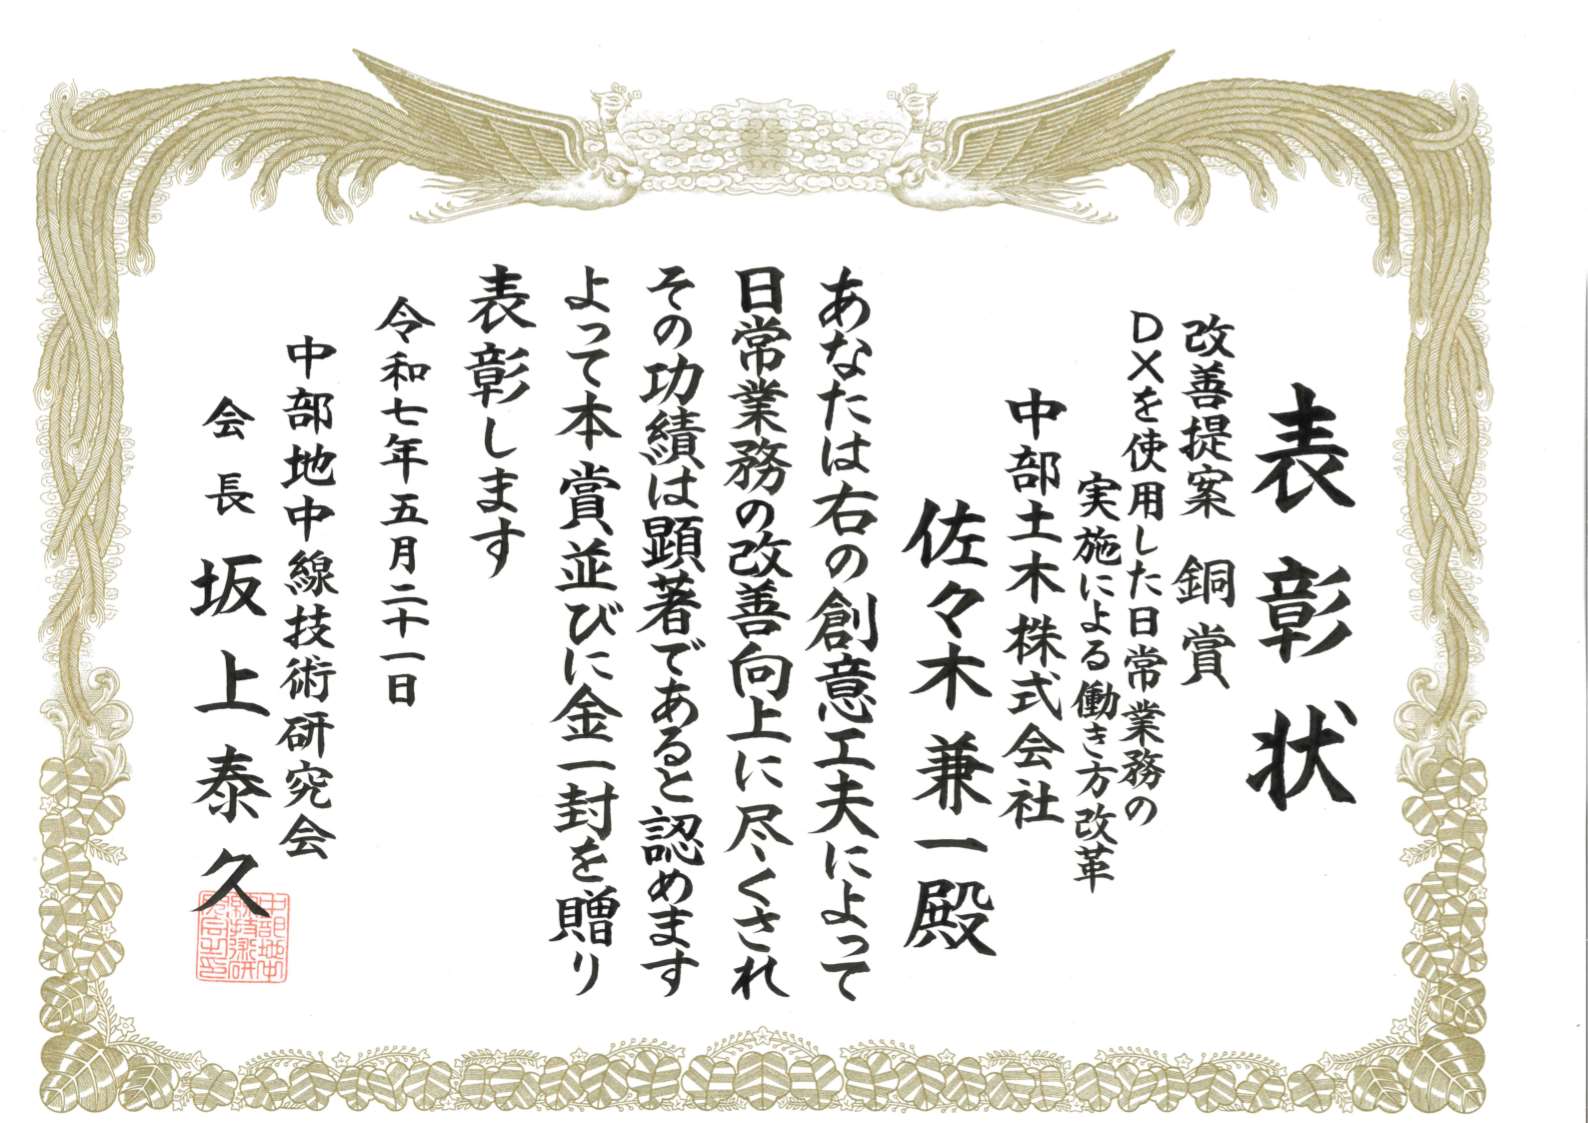 表彰状
改善提案 銅賞
DXを使用した日常業務の
実施による働き方改革
中部土木株式会社
佐々木兼一殿
あなたは右の創意工夫によって
日常業務の改善向上に尽くされ
その功績は顕著であると認めます
よって本賞並びに金一封を贈り
表彰します
令和七年五月二十一日
中部地中線技術研究会
会長 坂上泰久
中部地中
線技術研
究会之印